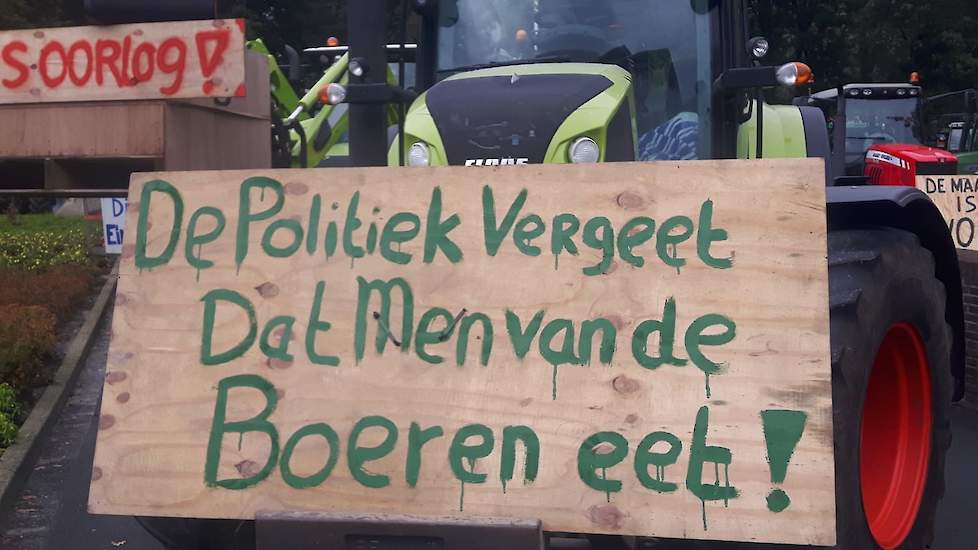 S OORlog!
CLAAS
De Politiek Vergeet
Dat Men van de
Boeren eet!
DE MAA
IS
VO